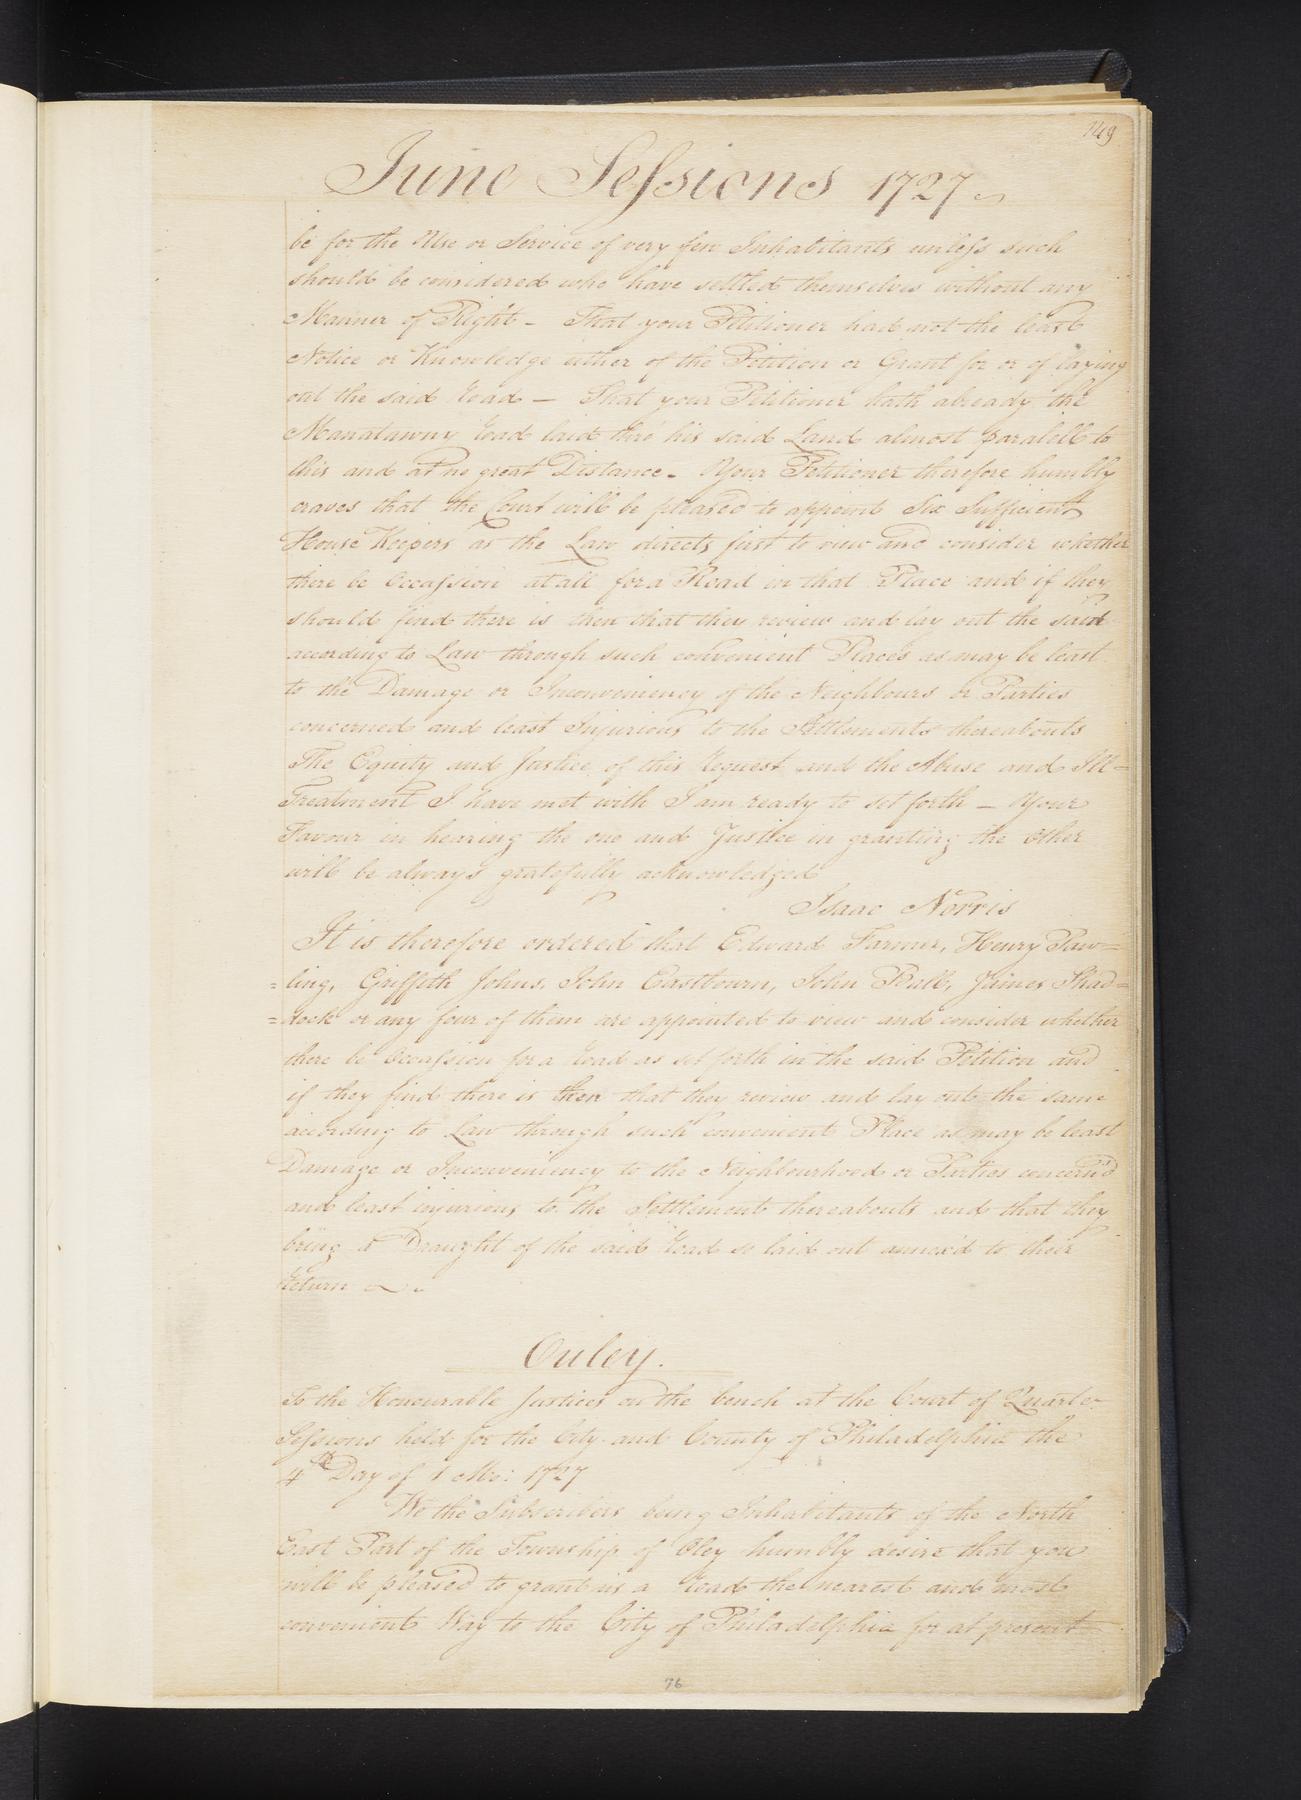 149
June Sessions 1727
be for the Use or Service of very few Inhabitants unless such
should be considered who have settled themselves without any
Manner of Right - That your Petitioner had not the least
Notice or Knowledge either of the Petition or Grant for or of laying
out the said Road - That your Petitioner hath already the
Manatawny Road laid thro' his said Land almost paralell to
this and at no great Distance - Your Petitioner therefore humbly
craves that the Court will be pleased to appoint Six Sufficient
House Keepers as the Law directs first to view and consider whether
there be Occassion at all for a Road in that Place and if they
should find there is then that they review and lay out the said
according to Law through such convenient Places as may be least
to the Damage or Inconveniency of the Neighbours or Parties
concerned and least Injurious to the Settlements thereabouts
The Equity and Justice of this Request and the Abuse and Ill=
Treatment I have met with I am ready to set forth - Your
Favour in hearing the one and Justice in granting the other
will be always gratefully acknowledged
Isaac Norris
It is therefore ordered that Edward Farmer, Henry Paw=
=ling, Griffith Johns, John Eastbourn, John Bull, James Shad=
=dock or any four of them are appointed to view and consider whether
there be Occassion for a Road as set forth in the said Petition and
if they find there is then that they review and lay out the same
according to Law through such convenient Place as may be least
Damage or Inconveniency to the Neighbourhood or Parties concern'd
and least injurious to the Settlements thereabouts and that they
bring a Draught of the said Road so laid out annex'd to their
Return
Ouley.
To the Honourable Justices on the bench at the Court of Quarter
Sessions held for the City and County of Philadelphia the
4th Day of 1 Mo: 1727
We the Subscribers being Inhabitants of the North
East Part of the Township of Oley humbly desire that you
will be pleased to grant us a Road the nearest and most
convenient Way to the City of Philadelphia for at present
76